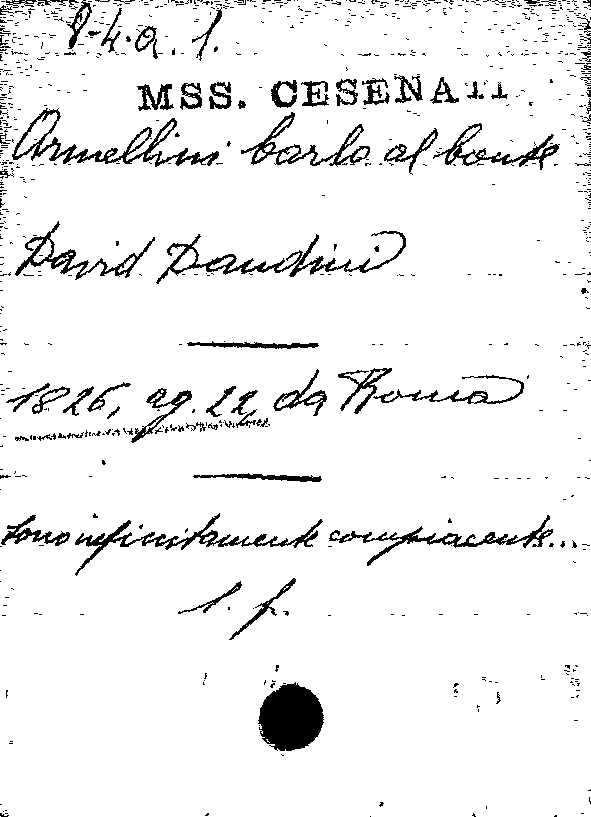 8-4.a.1.
MSS. CESENATI
Armellini Carlo al Conte
David Dandini
1826, ag. 22, da Roma
sono infinitamente compiacente...
l. f.